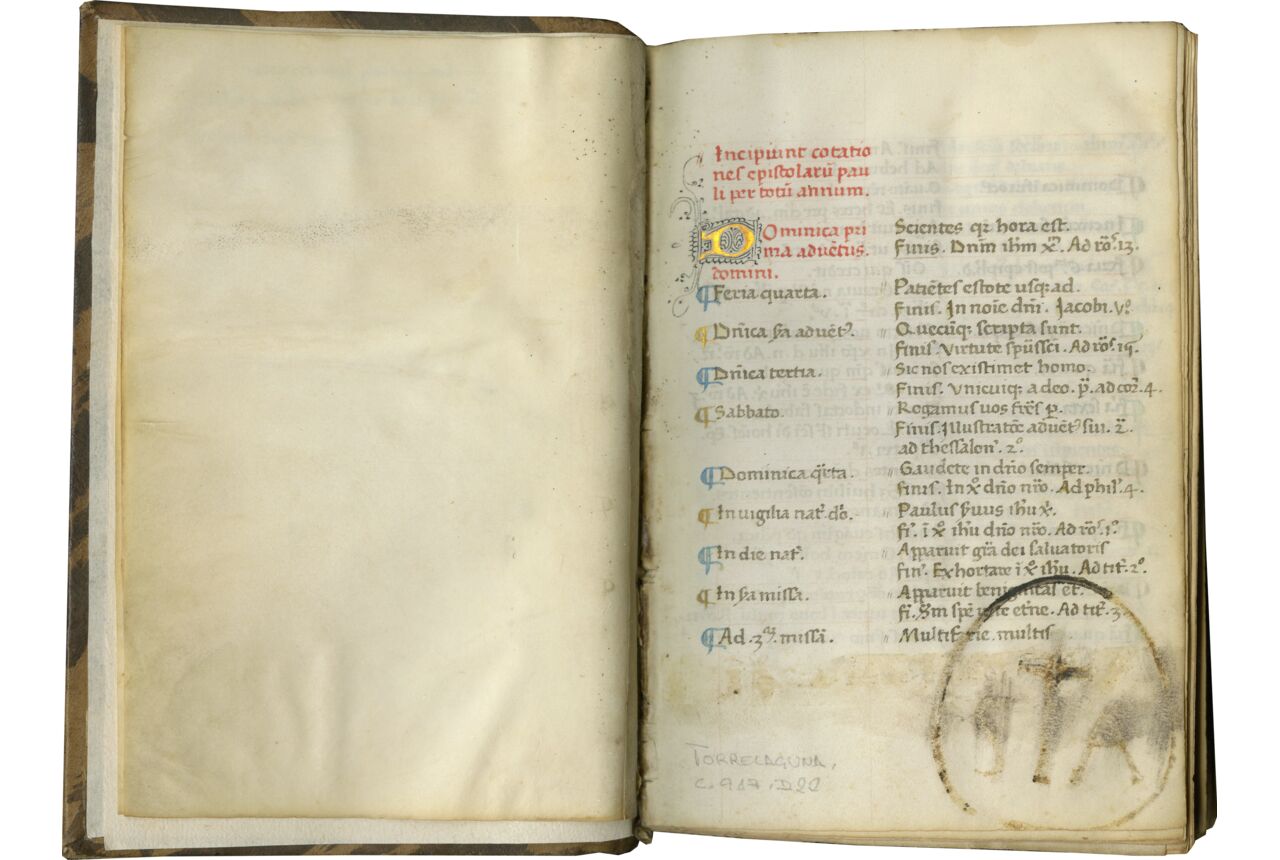 Incipiunt cotatio
nes epistolarū pau
li per totū annum.
Dominica pri
ma advētus.
domini.
Scientes qꝛ hora est.
Finis. Dnm ihm xp̄. Ad roˢ. 13.
¶ Feria quarta. " Patiētes estote usq; ad.
Finis. In noīe dnī. Jacobi. vº
¶ Dnīca ſa advēt². " Quecūq; scripta sunt.
finis. Virtute spūssci. Ad roˢ. 15.
¶ Dnīca tertia. " Sic nos existimet homo.
Finis. Vnicuiq; a deo. p̄. ad cor̄. 4.
¶ Sabbato " Rogamus uos frēs p.
Finis. Illustratōe advēt² sui. 2.
ad thessalon̄. 2º
¶ Dominica q̄rta. " Gaudete in dn̄o semper.
finis. In xº dn̄o nr̄o. Ad phil'. 4.
¶ In vigilia nat². dō. " Paulus s̄uus ihū xº.
fi². ī xº ihu dn̄o nr̄o. Ad roˢ. 1º
¶ In die nat². " Apparuit gr̄a dei salvatoris
fin². Exhortare ī xº ihū. Ad tit². 2º.
¶ In ſa missa. " Apparuit benignitas et.
fi. Sm spē etn̄e. Ad tit². 3
¶ Ad .3ᵃᵐ. missā. " Multifarie multis
TORRELAGUNA,
C. 917. D22